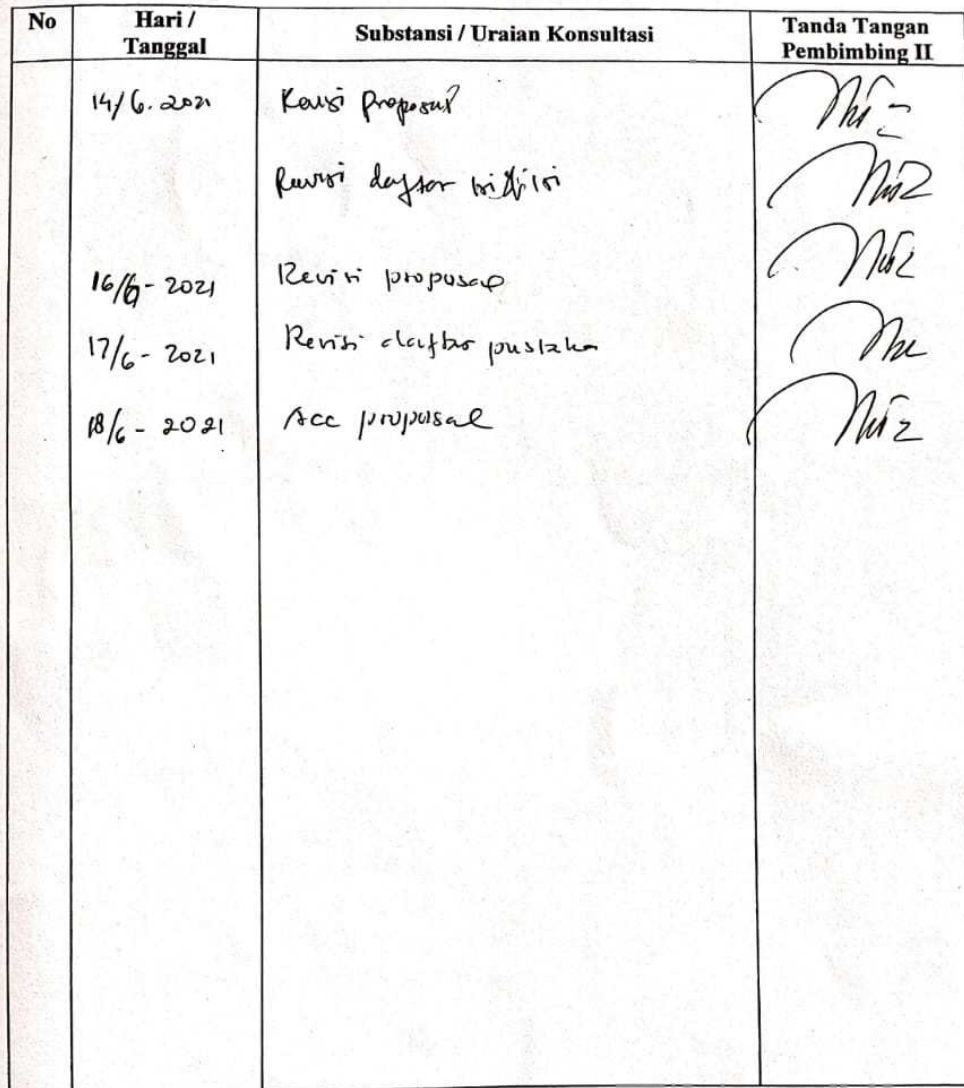 No Hari / Tanggal Substansi / Uraian Konsultasi Tanda Tangan Pembimbing II
14/6. 2021 Revisi proposal
Revisi daftar isi
16/6 - 2021 Revisi proposal
17/6 - 2021 Revisi daftar pustaka
18/6 - 2021 Acc proposal